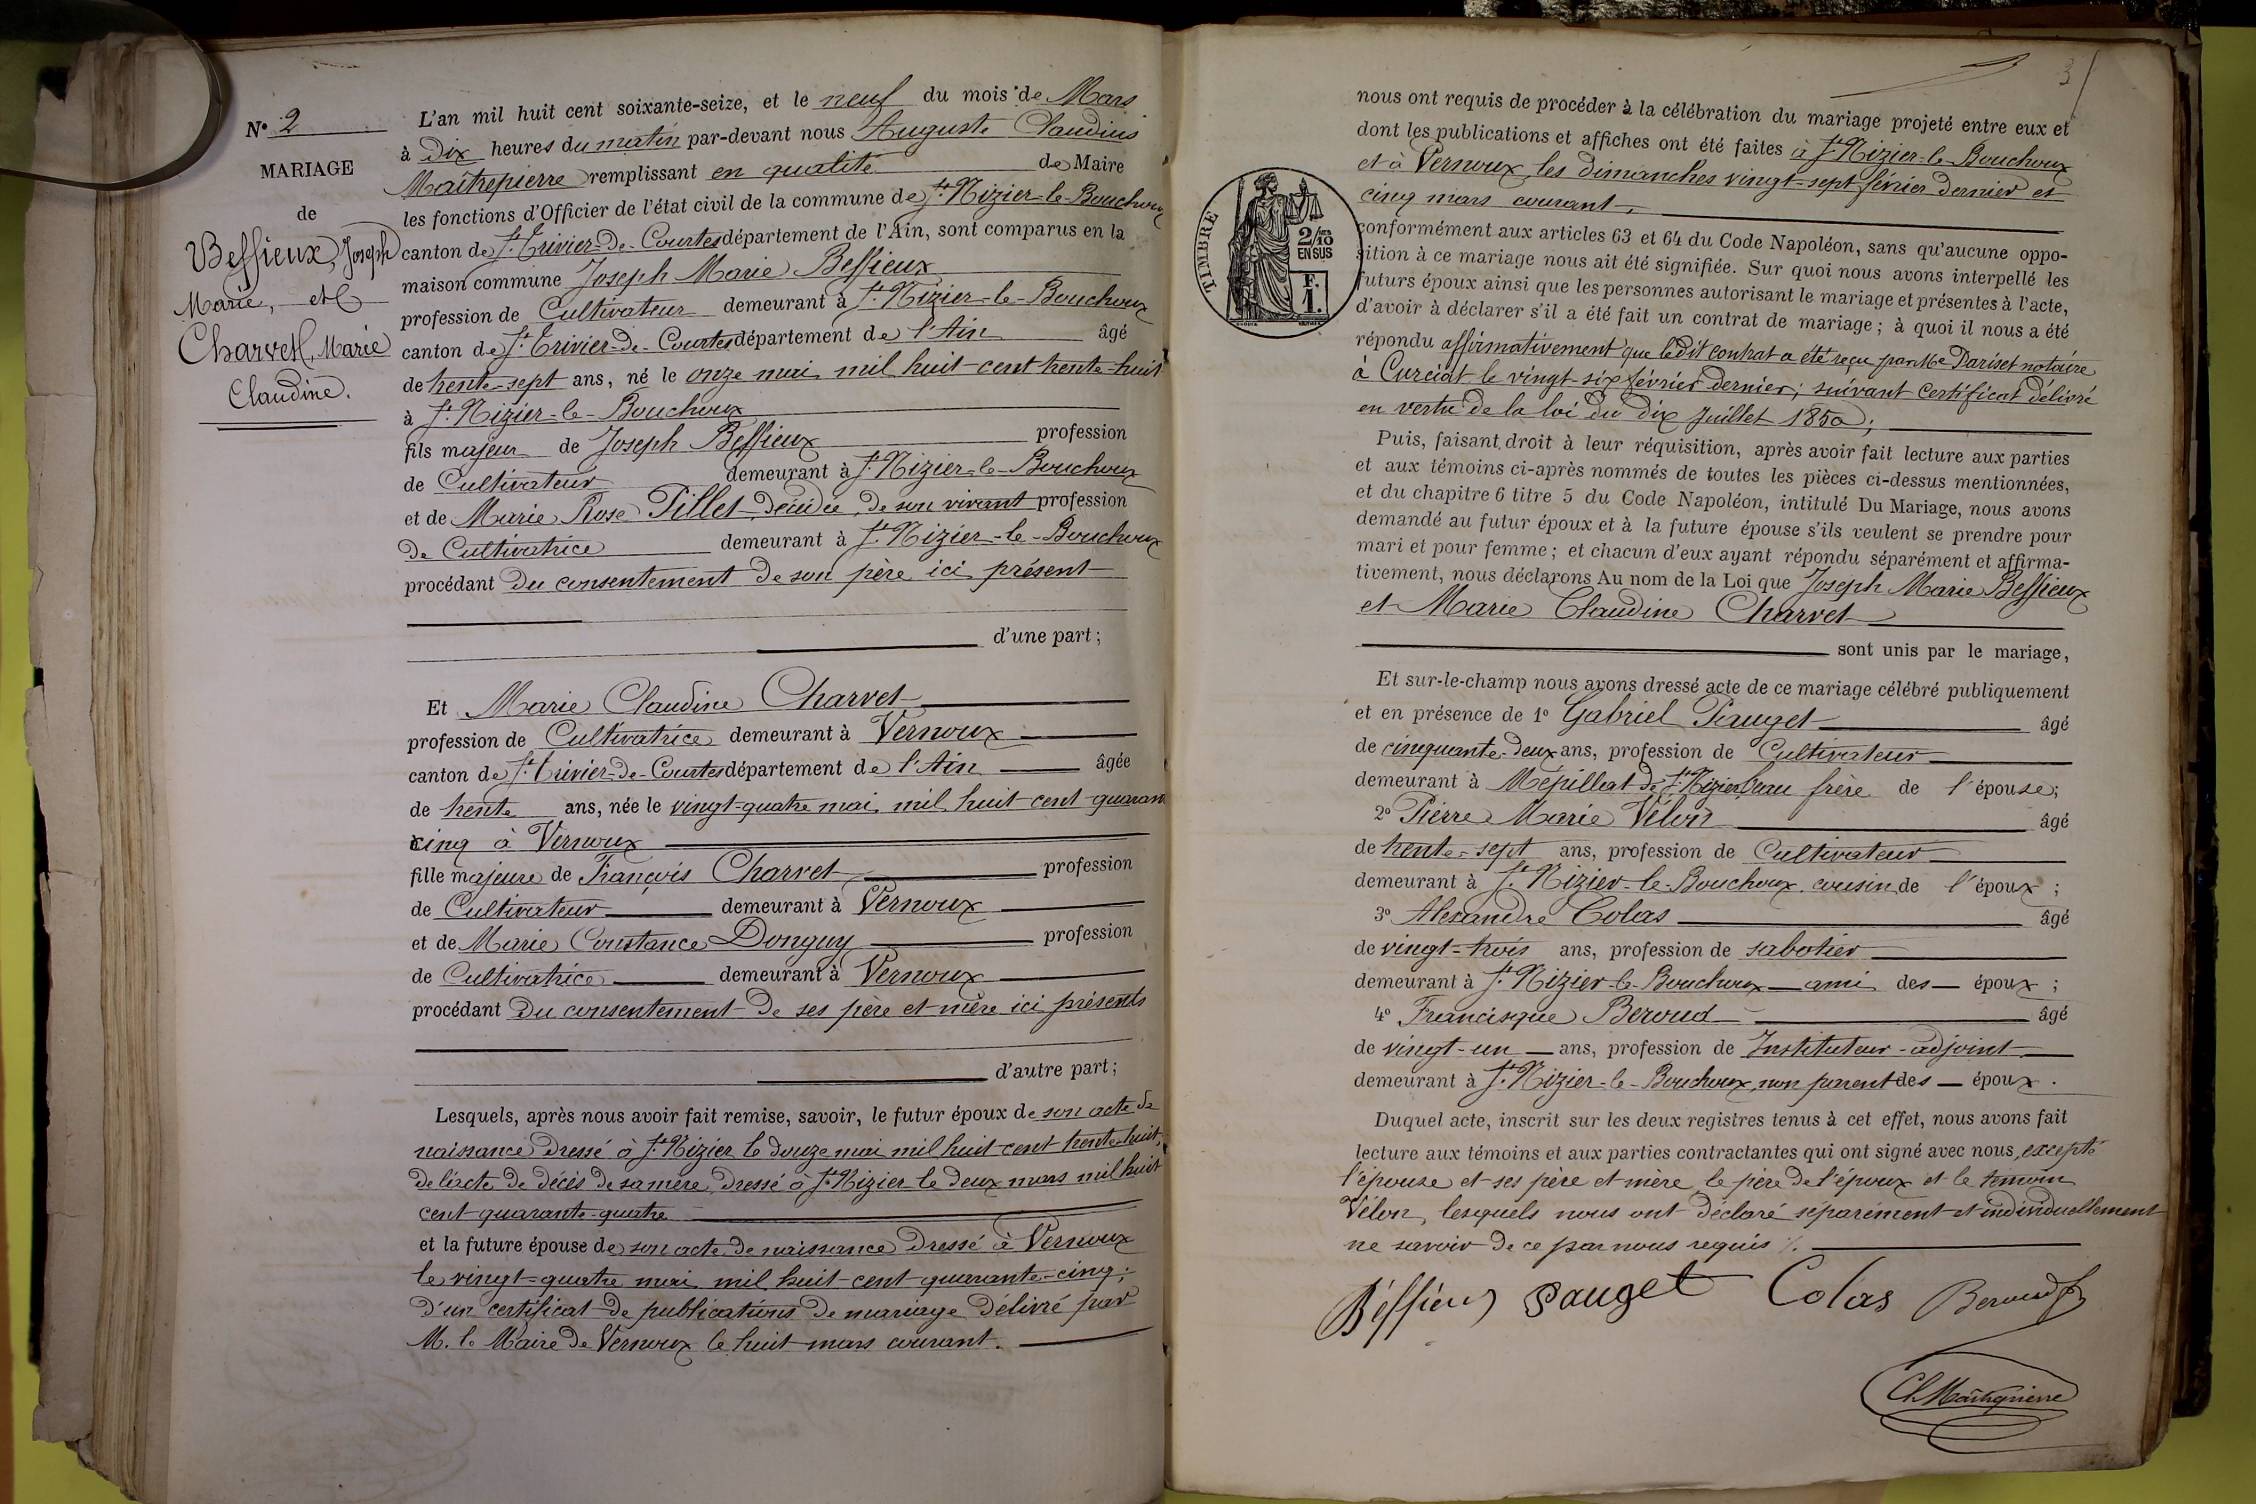 N° 2
MARIAGE
de
Bessieux, Joseph
Marie, et
Charvet, Marie
Claudine.
L'an mil huit cent soixante-seize, et le neuf du mois de Mars
à dix heures du matin par-devant nous Auguste Claudius
Maîtrepierre remplissant en qualité de Maire
les fonctions d'Officier de l'état civil de la commune de St Nizier-le-Bouchoux
canton de St Trivier-de-Courtes département de l'Ain, sont comparus en la
maison commune Joseph Marie Bessieux
profession de Cultivateur demeurant à St Nizier-le-Bouchoux
canton de St Trivier-de-Courtes département de l'Ain âgé
de trente-sept ans, né le onze mai mil huit-cent trente-huit
à St Nizier-le-Bouchoux
fils majeur de Joseph Bessieux profession
de Cultivateur demeurant à St Nizier-le-Bouchoux
et de Marie Rose Pillet décédée, de son vivant profession
de Cultivatrice demeurant à St Nizier-le-Bouchoux
procédant du consentement de son père ici présent
d'une part;
Et Marie Claudine Charvet
profession de Cultivatrice demeurant à Vernoux
canton de St Trivier-de-Courtes département de l'Ain âgée
de trente ans, née le vingt-quatre mai mil huit-cent-quarante
cinq à Vernoux
fille majeure de François Charvet profession
de Cultivateur demeurant à Vernoux
et de Marie Constance Donguy profession
de Cultivatrice demeurant à Vernoux
procédant du consentement de ses père et mère ici présents
d'autre part;
Lesquels, après nous avoir fait remise, savoir, le futur époux de son acte de
naissance dressé à St Nizier le douze mai mil huit-cent trente-huit,
de l'acte de décès de sa mère, dressé à St Nizier le deux mars mil huit
cent quarante-quatre
et la future épouse de son acte de naissance dressé à Vernoux
le vingt-quatre mai mil huit-cent-quarante-cinq;
d'un certificat de publications de mariage délivré par
M. le Maire de Vernoux le huit mars courant.
3
nous ont requis de procéder à la célébration du mariage projeté entre eux et
dont les publications et affiches ont été faites à St Nizier-le-Bouchoux
et à Vernoux, les dimanches vingt-sept février dernier et
cinq mars courant,
conformément aux articles 63 et 64 du Code Napoléon, sans qu'aucune oppo-
sition à ce mariage nous ait été signifiée. Sur quoi nous avons interpellé les
futurs époux ainsi que les personnes autorisant le mariage et présentes à l'acte,
d'avoir à déclarer s'il a été fait un contrat de mariage; à quoi il nous a été
répondu affirmativement que ledit contrat a été reçu par Me Pariset notaire
à Curciat le vingt-six février dernier; suivant certificat délivré
en vertu de la loi du dix Juillet 1850;
Puis, faisant droit à leur réquisition, après avoir fait lecture aux parties
et aux témoins ci-après nommés de toutes les pièces ci-dessus mentionnées,
et du chapitre 6 titre 5 du Code Napoléon, intitulé Du Mariage, nous avons
demandé au futur époux et à la future épouse s'ils veulent se prendre pour
mari et pour femme; et chacun d'eux ayant répondu séparément et affirma-
tivement, nous déclarons Au nom de la Loi que Joseph Marie Bessieux
et Marie Claudine Charvet
sont unis par le mariage,
Et sur-le-champ nous avons dressé acte de ce mariage célébré publiquement
et en présence de 1° Gabriel Pauget âgé
de cinquante-deux ans, profession de Cultivateur
demeurant à Mépillat de St Nizier beau frère de l'épouse;
2° Pierre Marie Vélon âgé
de trente-sept ans, profession de Cultivateur
demeurant à St Nizier-le-Bouchoux cousin de l'époux;
3° Alexandre Colas âgé
de vingt-trois ans, profession de sabotier
demeurant à St Nizier-le-Bouchoux ami des époux;
4° Francisque Beroud âgé
de vingt-un ans, profession de Instituteur-adjoint
demeurant à St Nizier-le-Bouchoux, non parent des époux.
Duquel acte, inscrit sur les deux registres tenus à cet effet, nous avons fait
lecture aux témoins et aux parties contractantes qui ont signé avec nous, excepté
l'épouse et ses père et mère, le père de l'époux et le témoin
Vélon, lesquels nous ont déclaré séparément et individuellement
ne savoir de ce par nous requis ./.
Béssieux Pauget Colas Beroud f
Cl. Maîtrepierre
TIMBRE
2/10 EN SUS
F. 1.